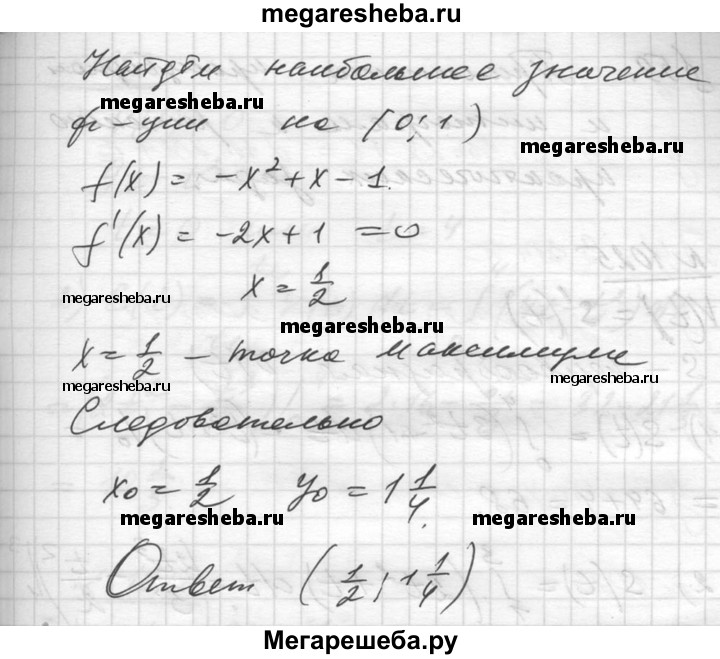 megaresheba.ru
Найдём наибольшее значение
megaresheba.ru
ф-ции на (0; 1)
megaresheba.ru
f(x) = -x² + x - 1.
f'(x) = -2x + 1 = 0
x = 1/2
megaresheba.ru
megaresheba.ru
x = 1/2 - точка максимума
megaresheba.ru
megaresheba.ru
Следовательно
x₀ = 1/2 y₀ = 1 1/4.
megaresheba.ru
megaresheba.ru
Ответ (1/2; 1 1/4)
Мегарешеба.ру